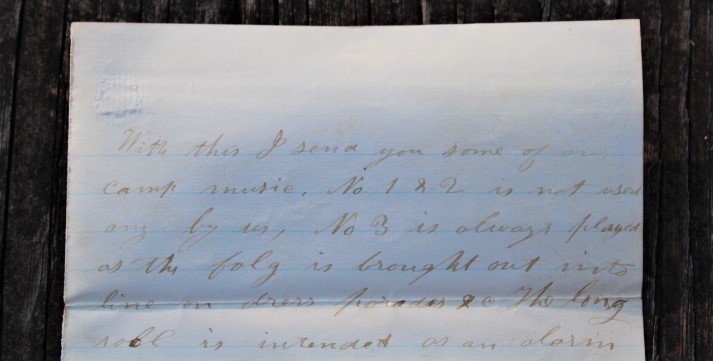 With this I send you some of our
camp music, No 1 & 2 is not used
any by us, No 3 is always played
as the falg is brought out into
line on dress parades &c The long
roll is intended as an alarm